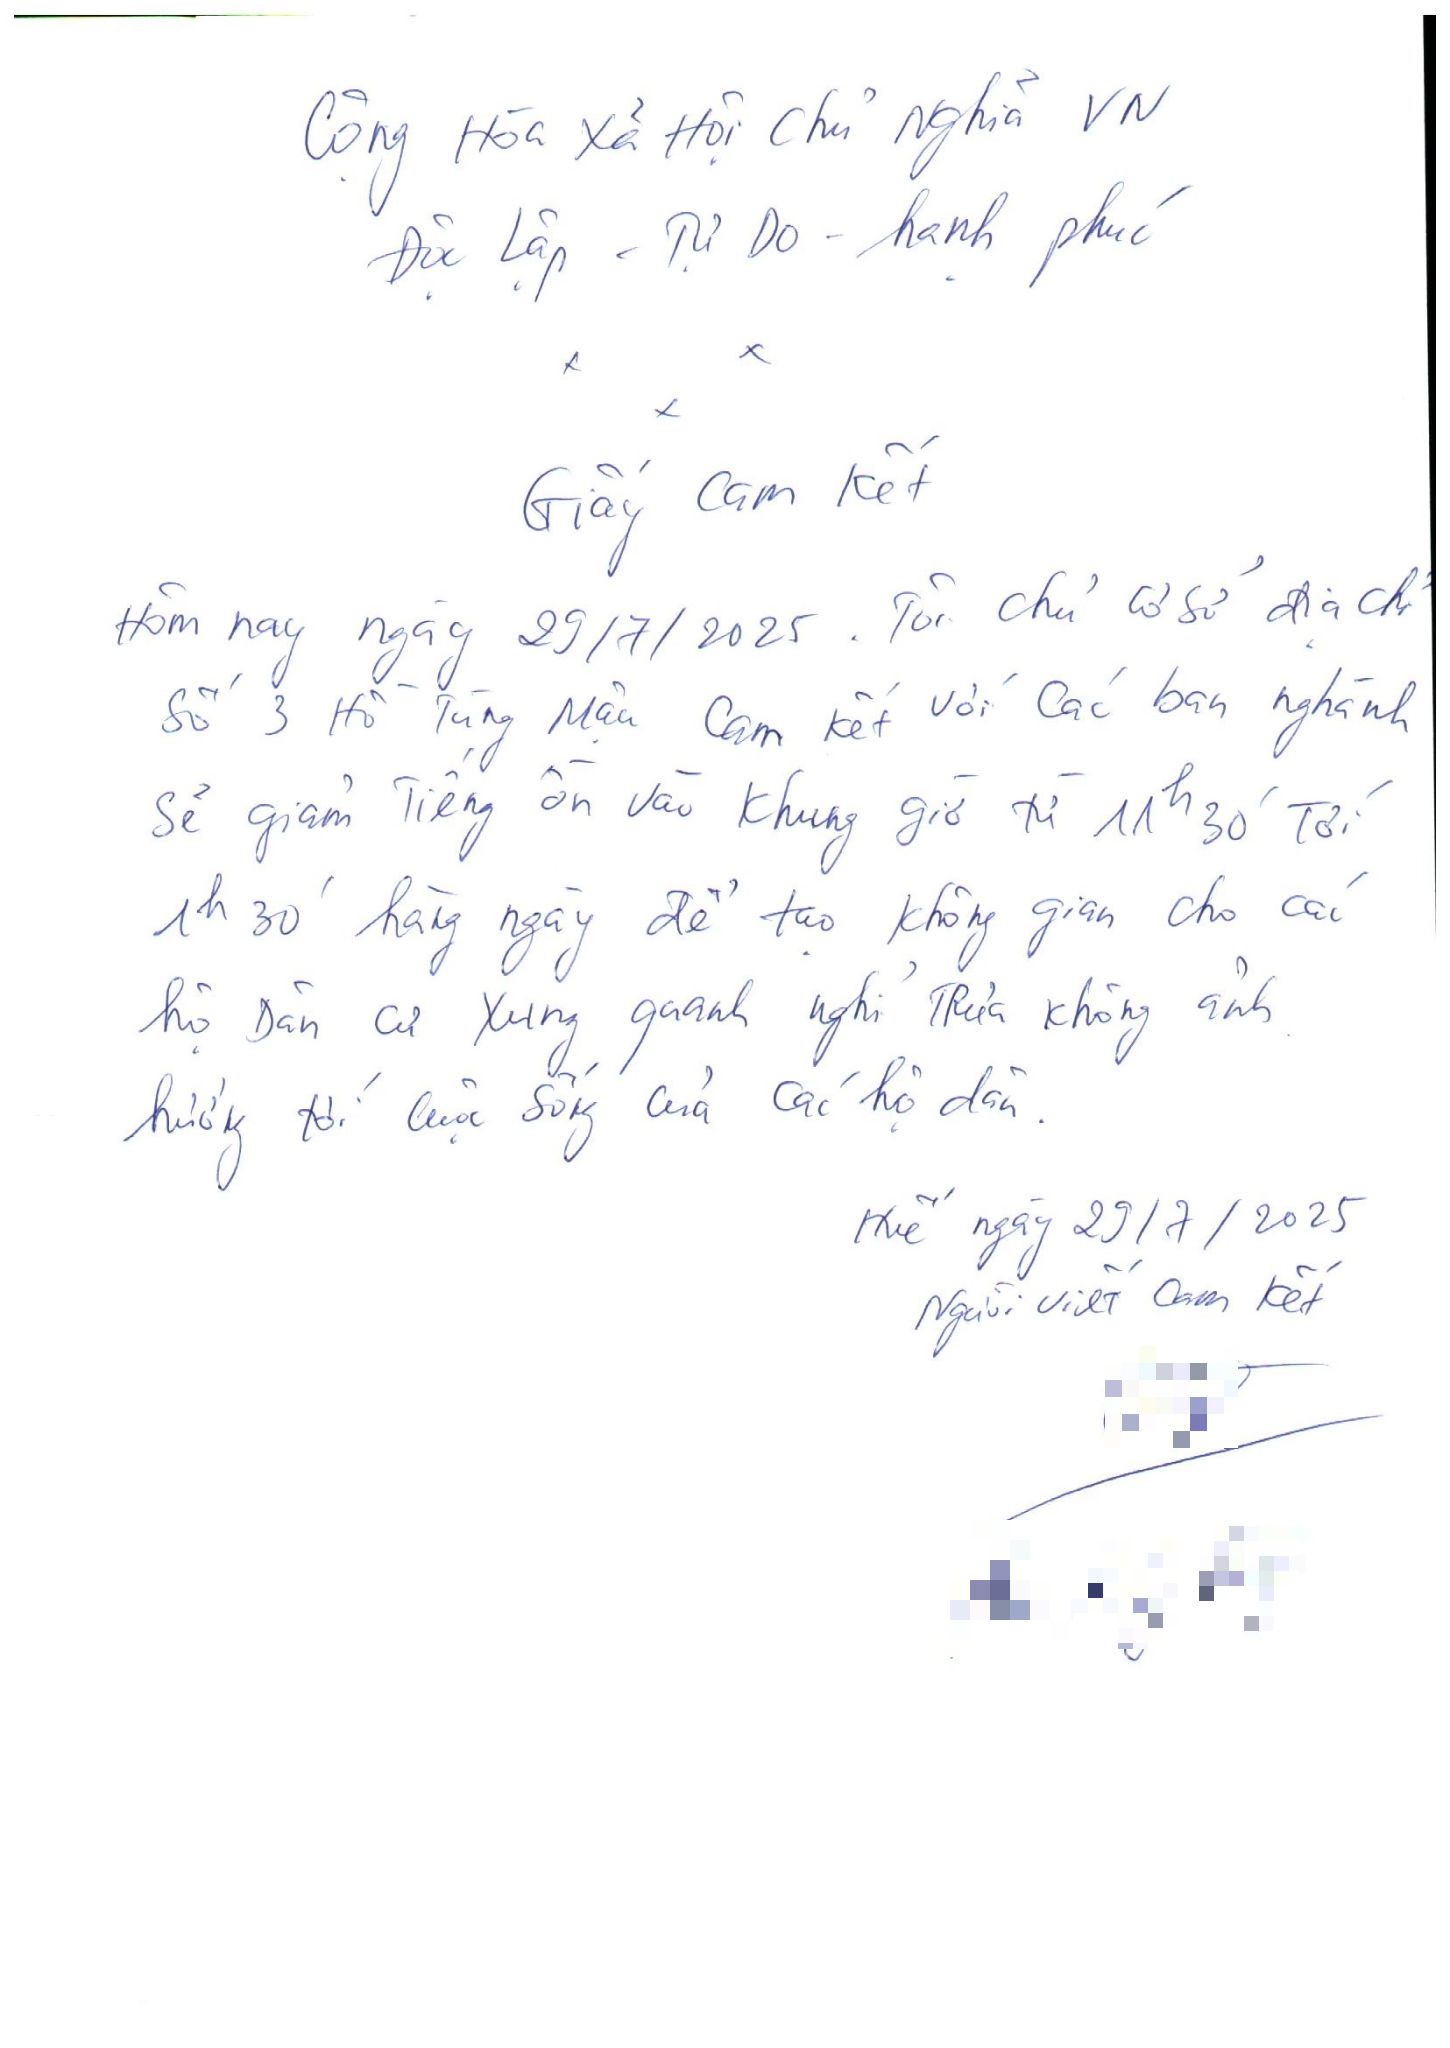 Cộng Hòa Xả Hội Chủ Nghỉa VN
Độc Lập - Tự Do - hạnh phúc
x x
x
Giấy Cam Kết
Hôm nay ngày 29/7/2025. Tôi chủ cơ sở địa chỉ
Số 3 Hồ Tùng Mậu Cam kết với các ban nghành
Sẻ giảm Tiếng ồn vào khung giờ từ 11h30' Tới
1h30' hàng ngày để tạo không gian cho các
hộ Dân cư xung quanh nghỉ Trưa không ảnh
hưởng tới cuộc sống của các hộ dân.
Huế ngày 29/7/2025
Người viết Cam Kết